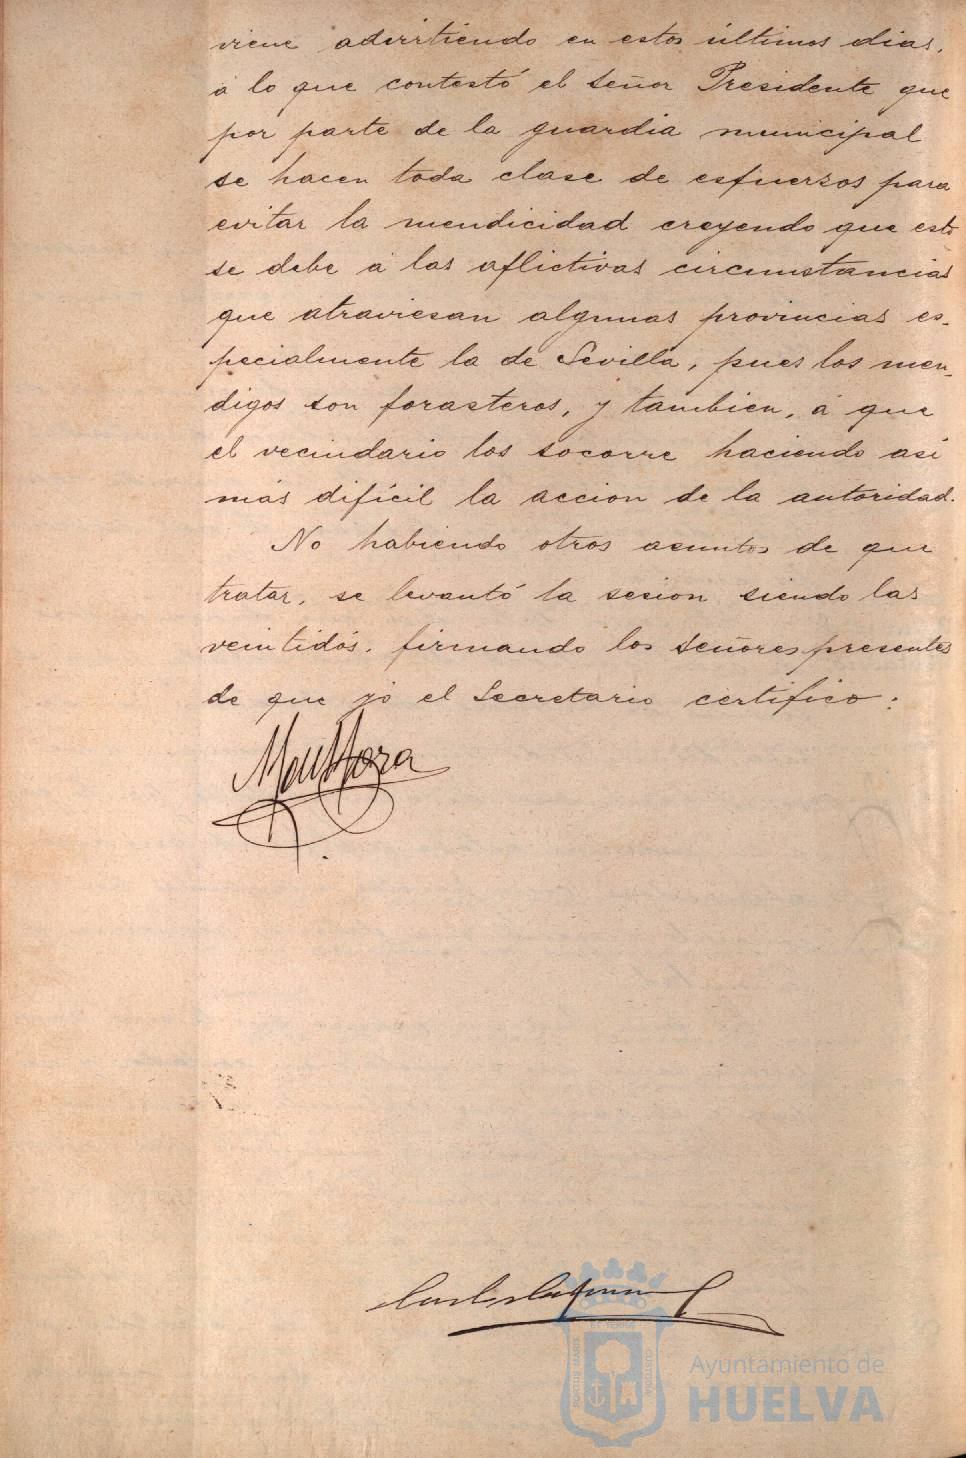 viene advirtiendo en estos últimos dias,
á lo que contestó el señor Presidente que
por parte de la guardia municipal
se hacen toda clase de esfuerzos para
evitar la mendicidad creyendo que esto
se debe á las aflictivas circunstancias
que atraviesan algunas provincias es-
pecialmente la de Sevilla, pues los men-
digos son forasteros, y tambien, á que
el vecindario los socorre haciendo asi
más difícil la accion de la autoridad.
No habiendo otros asuntos de que
tratar, se levantó la sesion siendo las
veintidós, firmando los señores presentes
de que yo el Secretario certifico:
PORTUS MARIS
ET TERRÆ
CUSTODIA
Ayuntamiento de
HUELVA